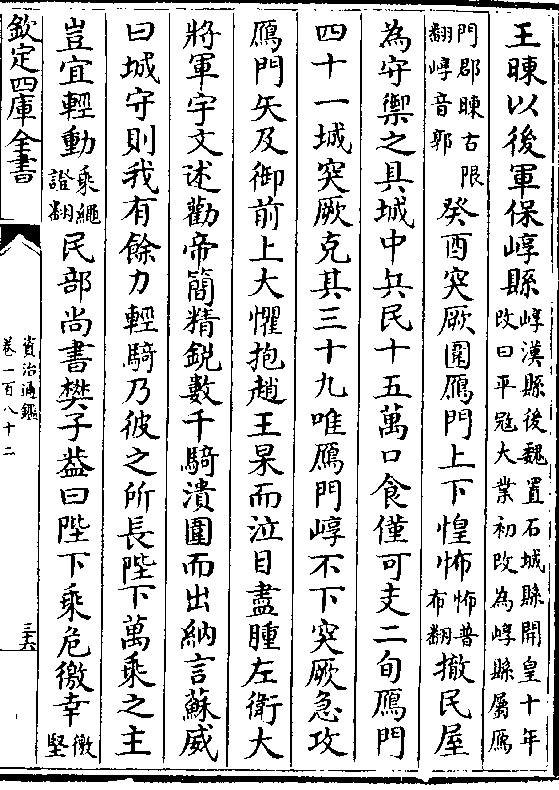 王暕以後軍保崞縣崞漢縣後魏置石城縣開皇十年
改曰平寇大業初改為崞縣屬鴈
門郡暕古限
翻崞音郭癸酉突厥圍鴈門上下惶怖怖普
布翻撤民屋
為守禦之具城中兵民十五萬口食僅可支二旬鴈門
四十一城突厥克其三十九唯鴈門崞不下突厥急攻
鴈門矢及御前上大懼抱趙王杲而泣目盡腫左衛大
將軍宇文述勸帝簡精銳數千騎潰圍而出納言蘇威
曰城守則我有餘力輕騎乃彼之所長陛下萬乘之主
豈宜輕動乘繩
證翻民部尚書樊子蓋曰陛下乘危徼幸徼
堅
欽定四庫全書
資治通鑑
卷一百八十二
三六